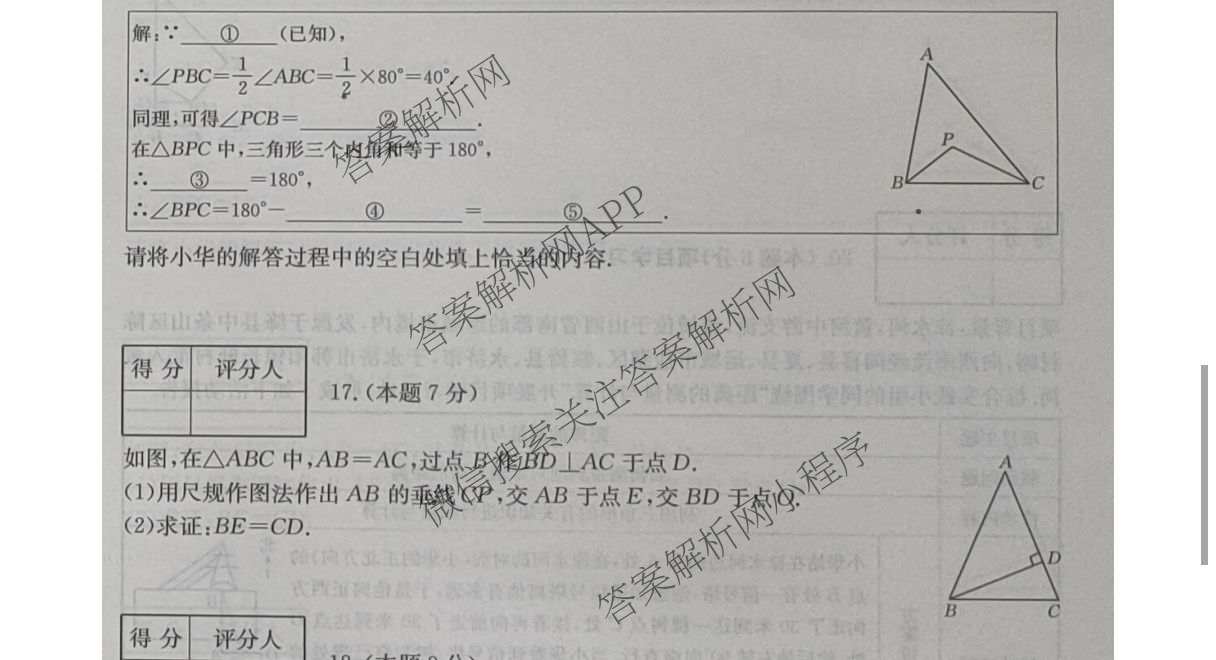 解:∵ ① (已知),
∴∠PBC=1/2∠ABC=1/2×80°=40°.
同理,可得∠PCB= ② .
在△BPC 中,三角形三个内角和等于 180°,
∴ ③ =180°,
∴∠BPC=180°− ④ = ⑤ .
A
P
B
C
请将小华的解答过程中的空白处填上恰当的内容.
得 分 评分人
17. (本题 7 分)
如图,在△ABC 中,AB=AC,过点 B 作 BD⊥AC 于点 D.
(1)用尺规作图法作出 AB 的垂线 CP,交 AB 于点 E,交 BD 于点 O.
(2)求证:BE=CD.
A
D
B
C
得 分 评分人
答案解析网
答案解析网APP
微信搜索关注答案解析网
答案解析网小程序